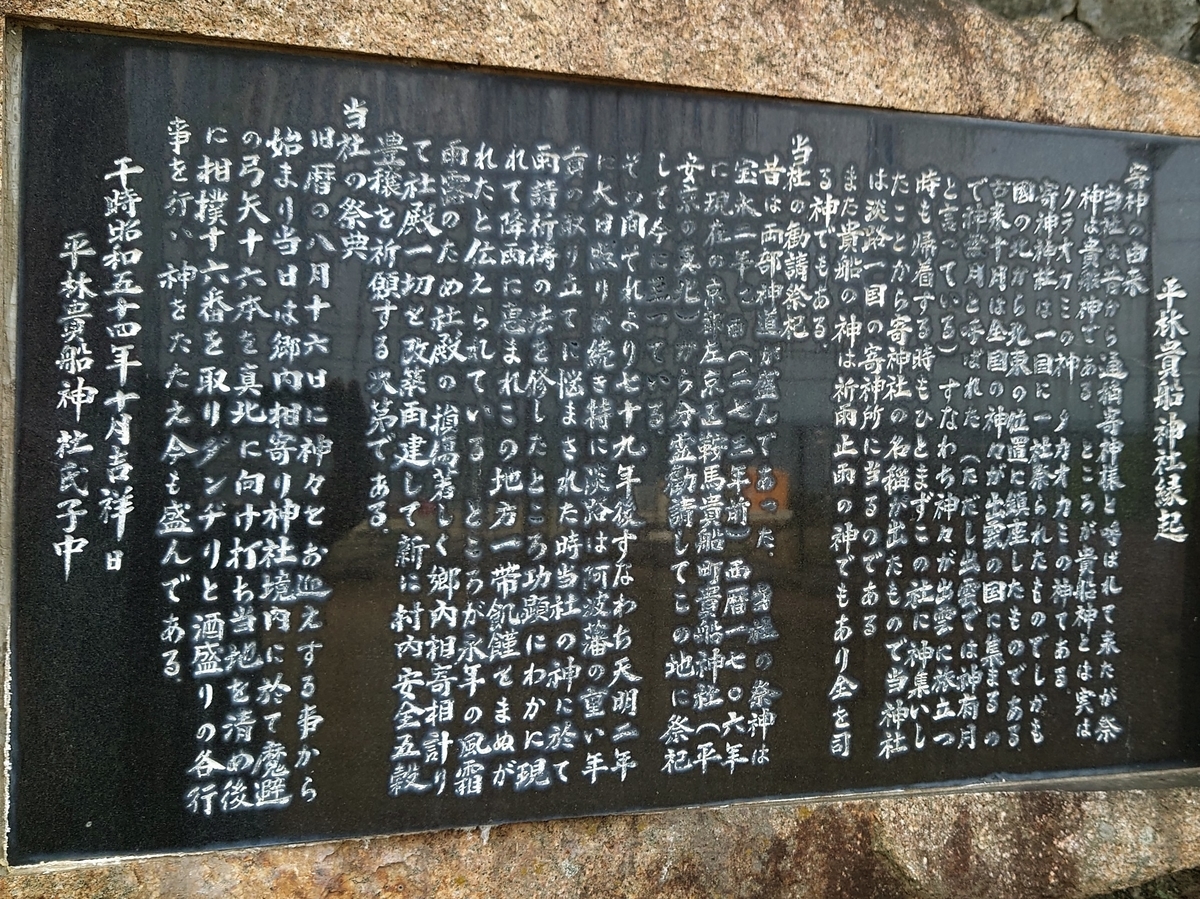 平林貴船神社縁起
寄神の由来
当社は昔から通称寄神様と呼ばれて来たが祭
神は貴船神せある ところが貴船神とは実は
クラオカミの神 タカオカミの神である
寄神神社は一国に一社祭られたものでしかも
国の北から北東の位置に鎮座したものである
古来十月は全国の神々が出雲の国に集まるの
で神無月と呼ばれた(ただし出雲では神有月
と言っている)すなわち神々が出雲に旅立つ
時も帰着する時もひとまずこの社に神集いし
たことから寄神社の名称が出たもので当神社
は淡路一国の寄神所に当るのである
また貴船の神は祈雨止雨の神でもあり全を司
る神でもある
当社の勧請祭祀
昔は両部神道が盛んであった 当社の祭神は
宝永二年 西暦一七〇六年
に現在の京都左京区鞍馬貴船町貴船神社(平
安京の真北)から分霊勧請してこの地に祭祀
して今に至っている
その間それより七十九年後すなわち天明二年
に大日照りが続き特に淡路は阿波藩の重い年
貢の取り立てに悩まされた時当社の神に於て
雨請祈祷の法を修したところ功顕にわかに現
れて降雨に恵まれこの地方一帯飢饉をまぬが
れたと伝えられている ところが永年の風霜
雨露のため社殿の損傷著しく郷内相寄相計り
て社殿一切を改築再建して新に村内安全五穀
豊穣を祈願する次第である
当社の祭典
旧暦の八月十六日に神々をお迎えする事から
始まり当日は郷内相寄り神社境内に於て魔避
の弓矢十六本を真北に向け打ち当地を清め後
に相撲十六番を取りダンヂリと酒盛りの各行
事を行い神をたたえ今も盛んである
干時昭和五十四年十月吉祥日
平林貴船神社氏子中